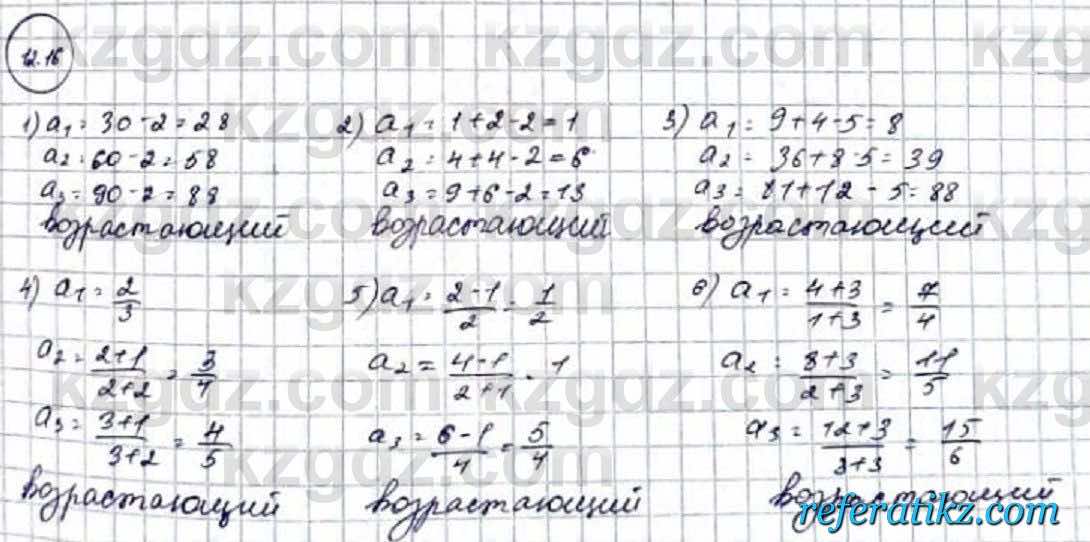 12.16
1) a₁ = 30 - 2 = 28
a₂ = 60 - 2 = 58
a₃ = 90 - 2 = 88
возрастающий
2) a₁ = 1 + 2 - 2 = 1
a₂ = 4 + 4 - 2 = 6
a₃ = 9 + 6 - 2 = 13
возрастающий
3) a₁ = 9 + 4 - 5 = 8
a₂ = 36 + 8 - 5 = 39
a₃ = 81 + 12 - 5 = 88
возрастающий
4) a₁ = 2/3
a₂ = (2+1)/(2+2) = 3/4
a₃ = (3+1)/(3+2) = 4/5
возрастающий
5) a₁ = (2-1)/2 = 1/2
a₂ = (4-1)/(2+1) = 1
a₃ = (6-1)/4 = 5/4
возрастающий
6) a₁ = (4+3)/(1+3) = 7/4
a₂ = (8+3)/(2+3) = 11/5
a₃ = (12+3)/(3+3) = 15/6
возрастающий
kzgdz.com
referatikz.com